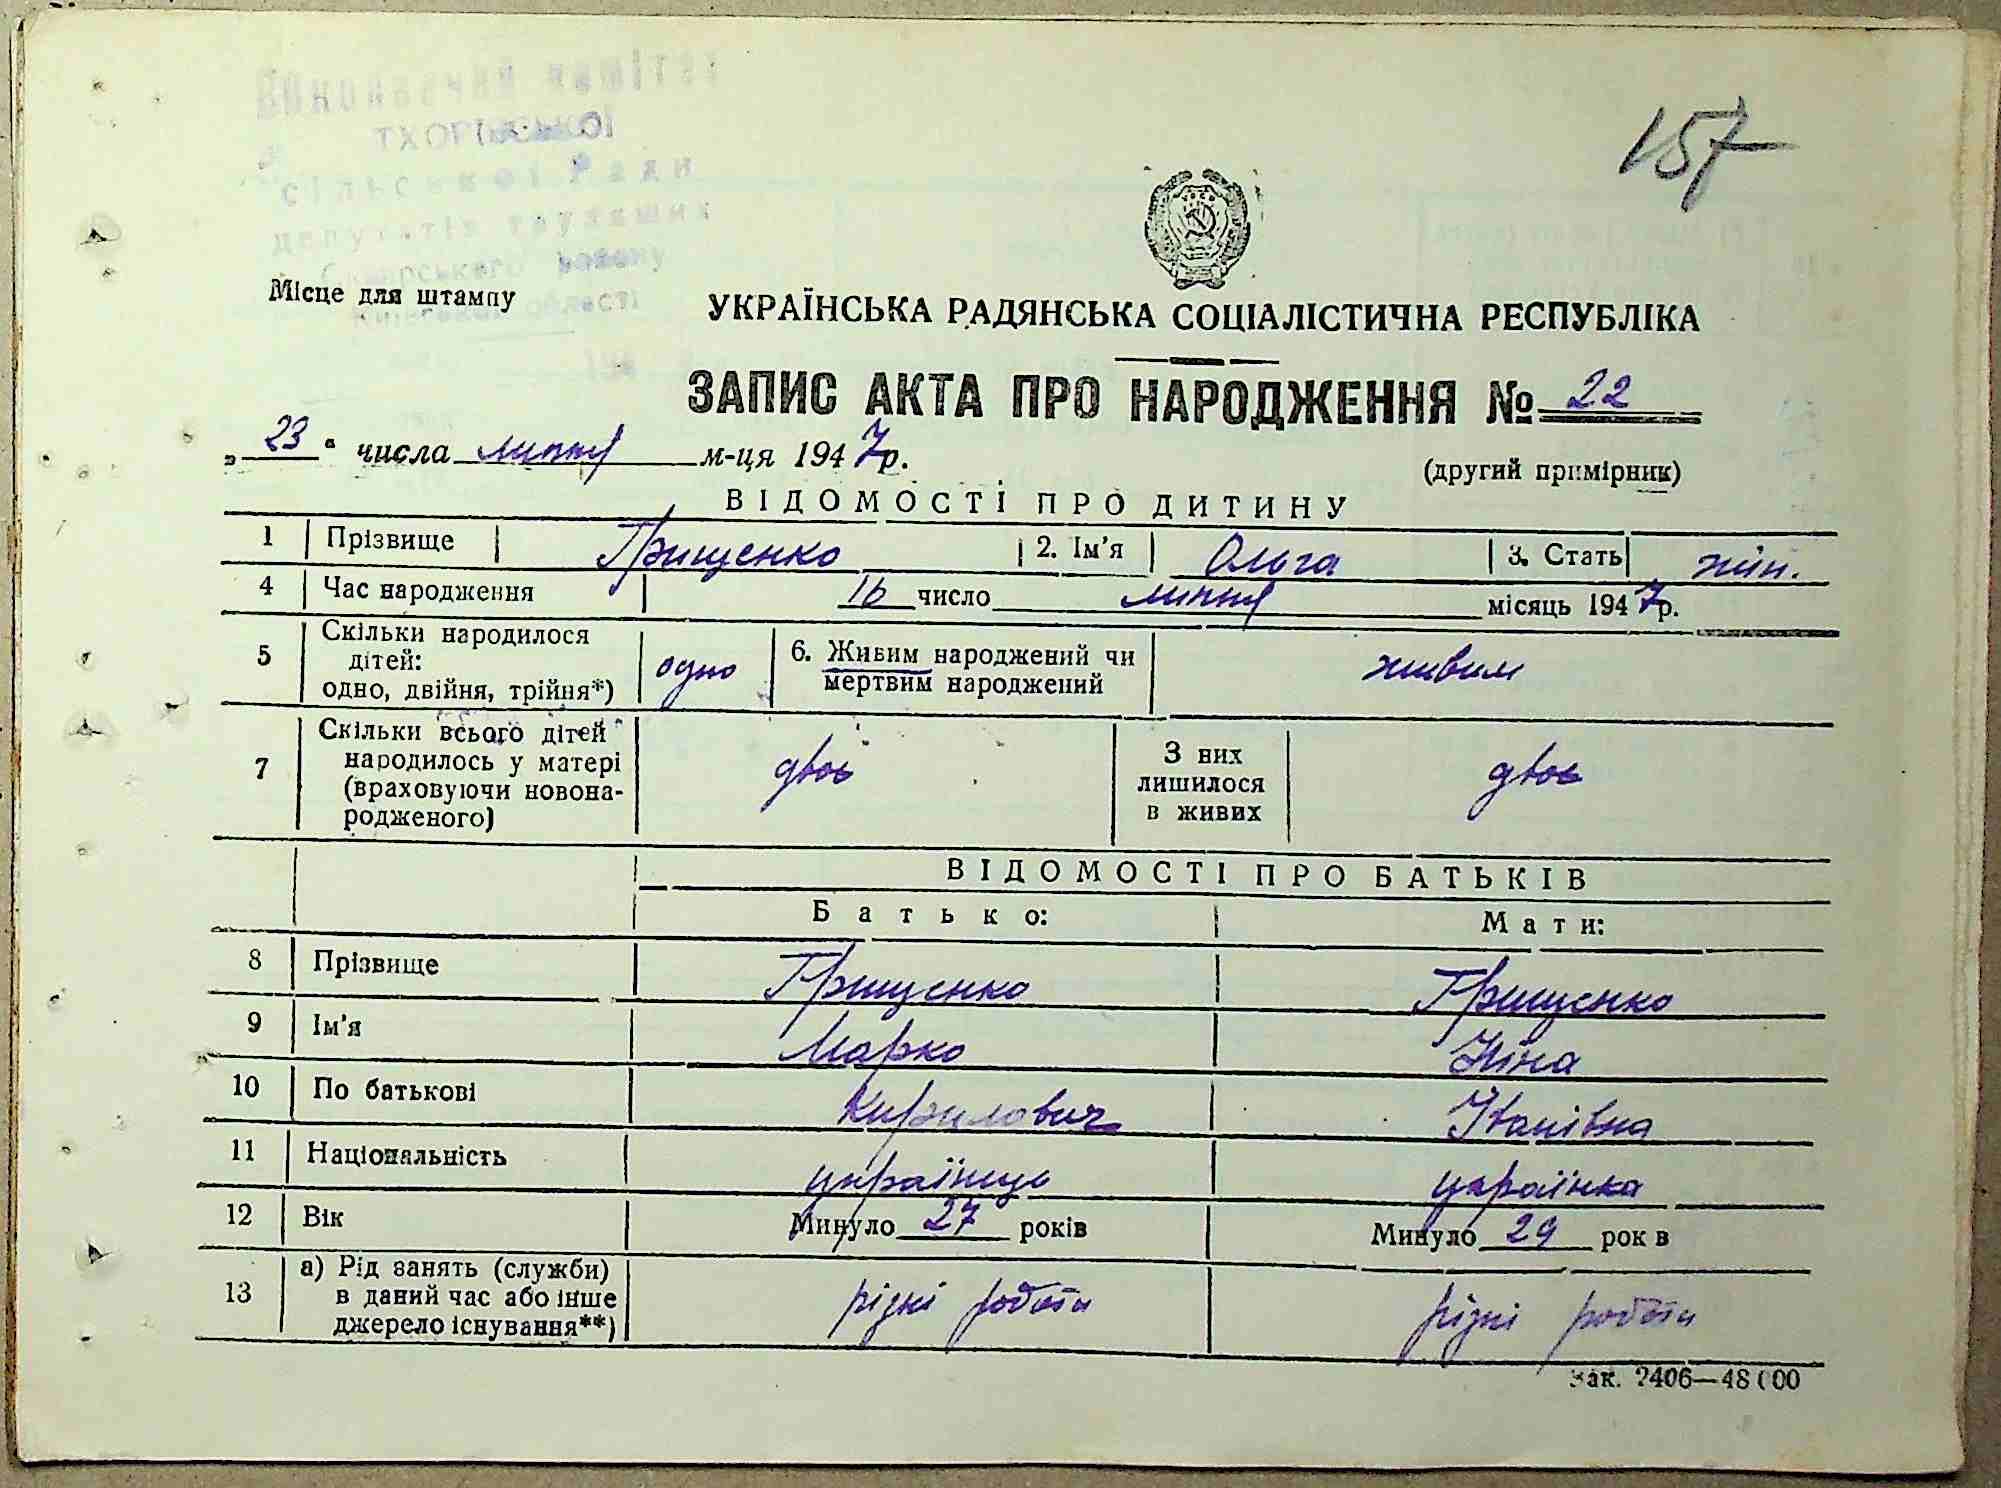 157
Виконавчий комітет
ТХОРІВСЬКОЇ
сільської Ради
депутатів трудящих
району
Київської області
194
Місце для штампу
УКРАЇНСЬКА РАДЯНСЬКА СОЦІАЛІСТИЧНА РЕСПУБЛІКА
ЗАПИС АКТА ПРО НАРОДЖЕННЯ № 22
„23“ числа липня м-ця 1947р.
(другий примірник)
ВІДОМОСТІ ПРО ДИТИНУ
1 Прізвище Грищенко 2. Ім'я Ольга 3. Стать жін.
4 Час народження 16 число липня місяць 1947р.
5 Скільки народилося дітей: одно, двійня, трійня*) одно 6. Живим народжений чи мертвим народжений живим
7 Скільки всього дітей народилось у матері (враховуючи новона-родженого) двоє З них лишилося в живих двоє
ВІДОМОСТІ ПРО БАТЬКІВ
Батько: Мати:
8 Прізвище Грищенко Грищенко
9 Ім'я Марко Ніна
10 По батькові Кирилович Іванівна
11 Національність українець українка
12 Вік Минуло 27 років Минуло 29 рок в
13 а) Рід занять (служби) в даний час або інше джерело існування**) різні роботи різні роботи
Зак. 2406—48000